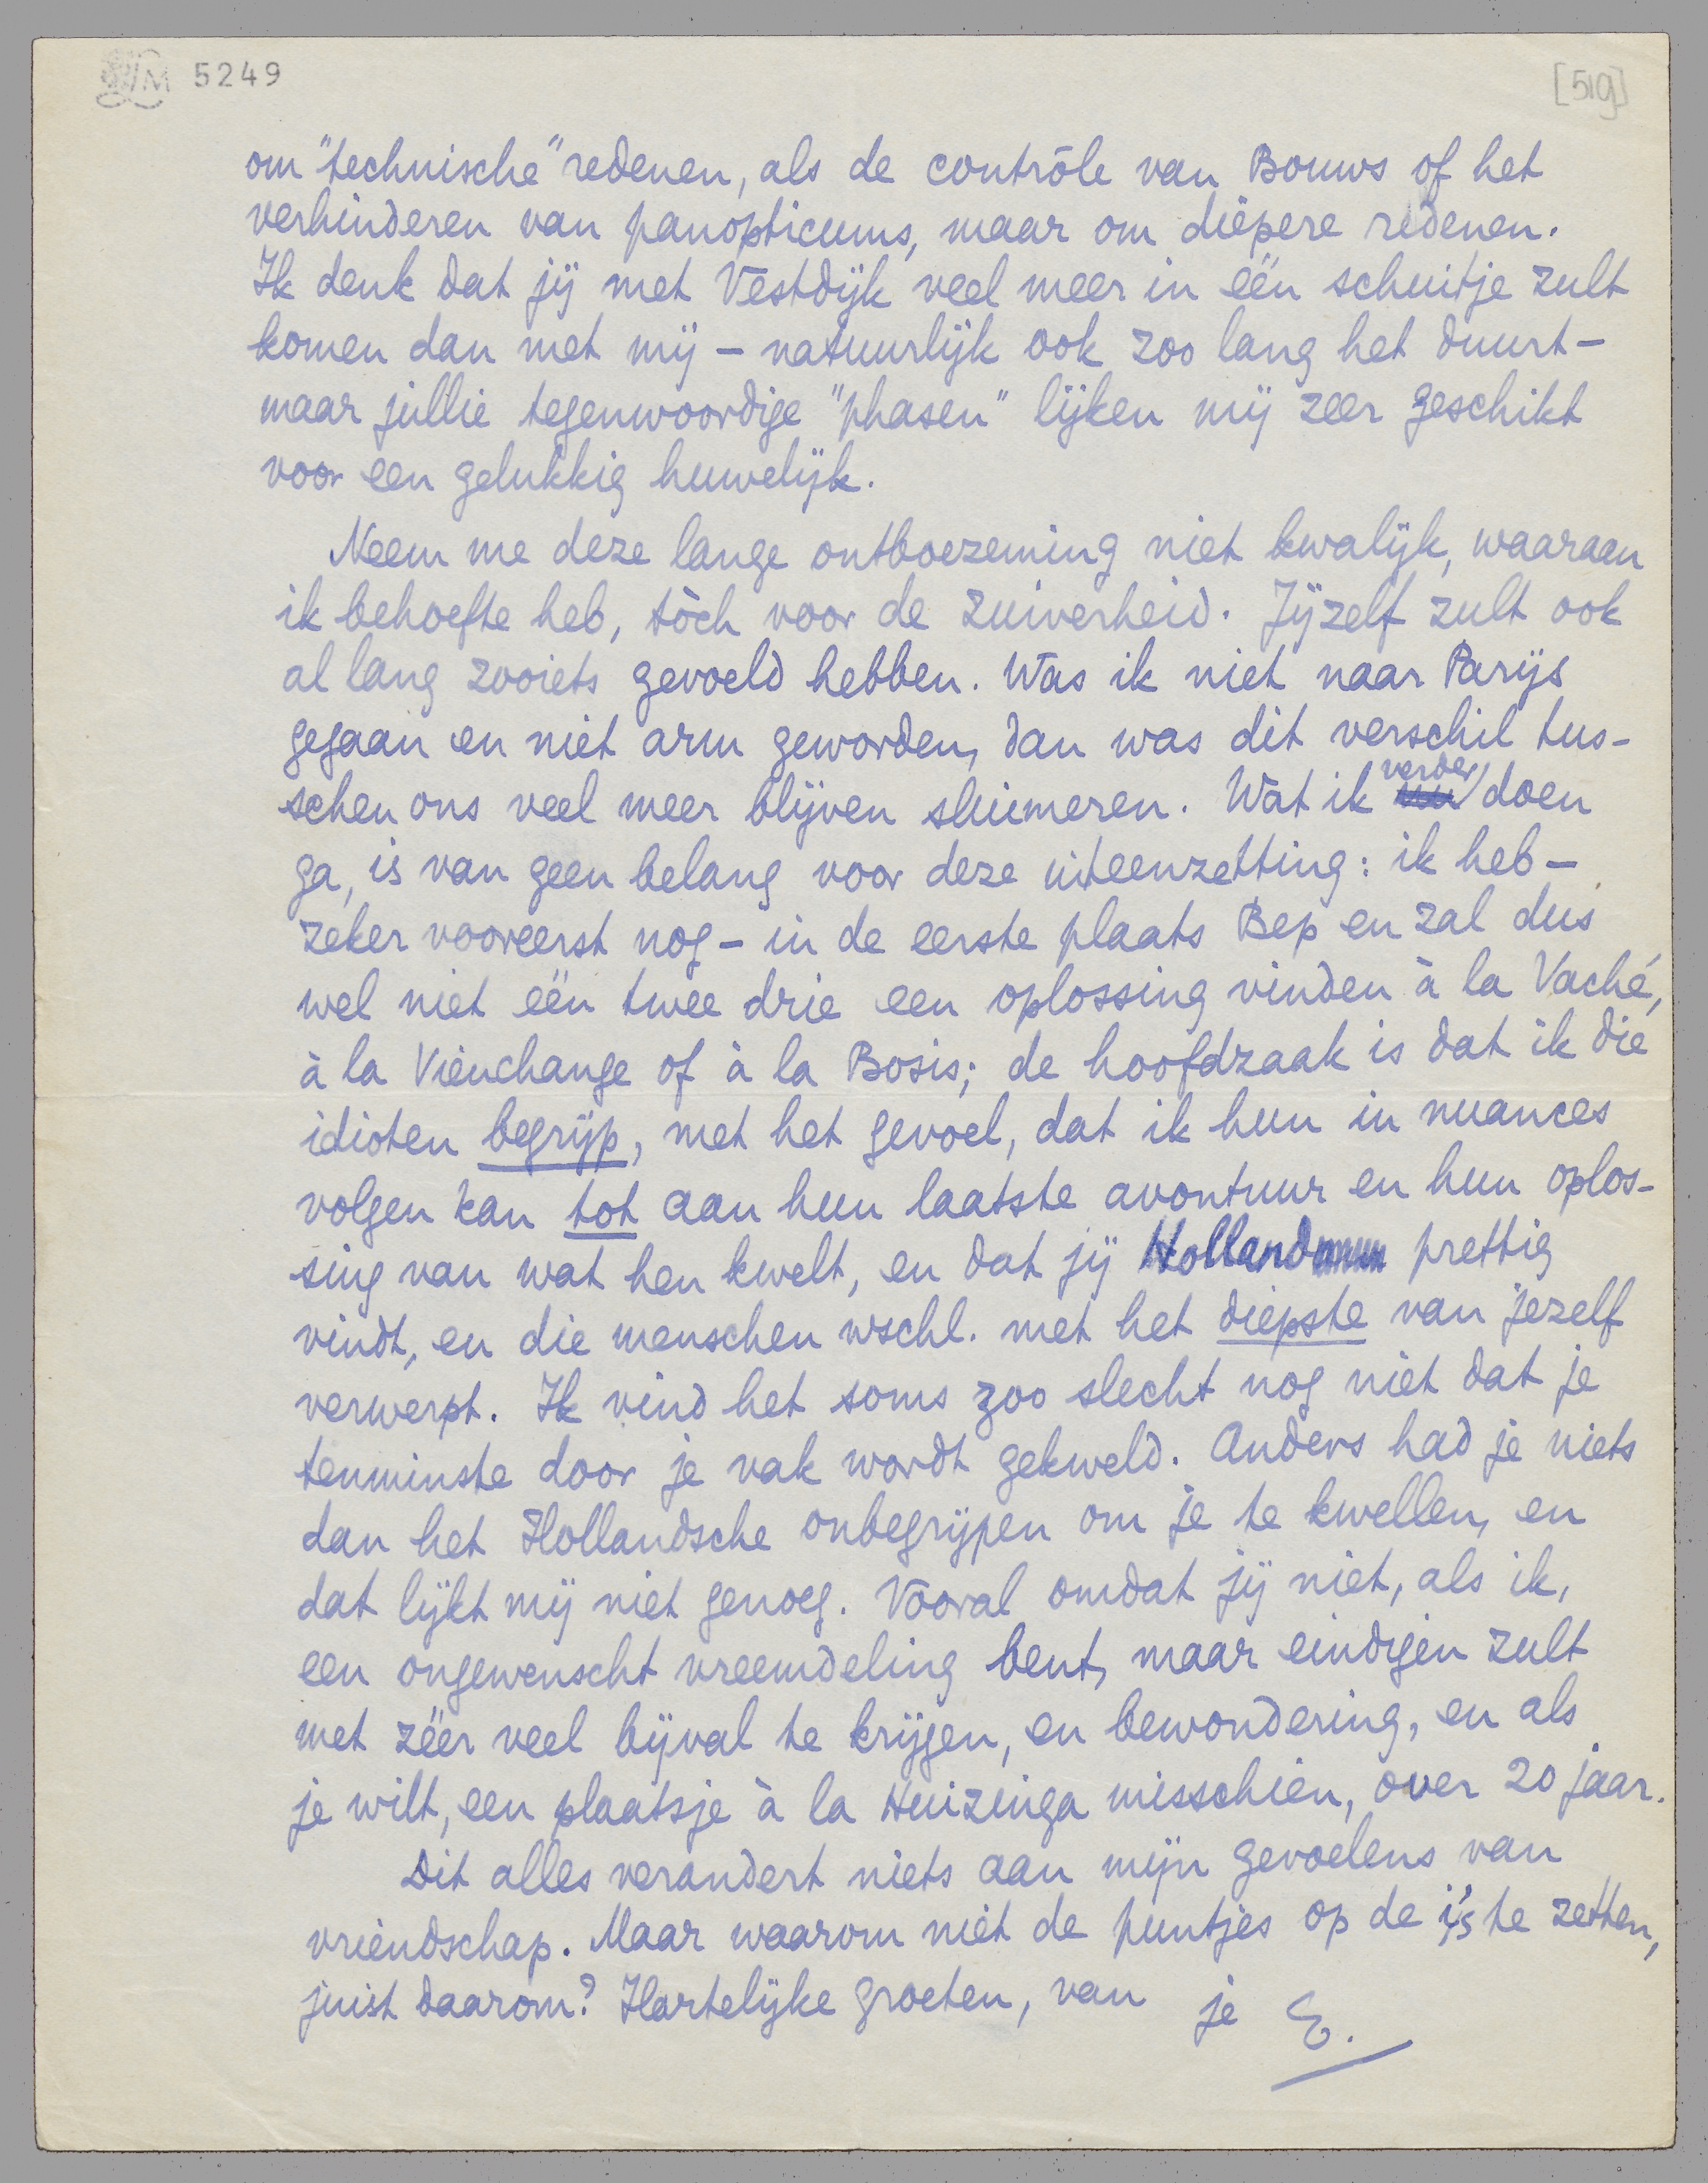 5249
[519]
om "technische" redenen, als de contrôle van Bouws of het
verhinderen van panopticums, maar om diepere redenen.
Ik denk dat jij met Vestdijk veel meer in één schuitje zult
komen dan met mij – natuurlijk ook zoo lang het duurt –
maar jullie tegenwoordige "phasen" lijken mij zeer geschikt
voor een gelukkig huwelijk.
Neem me deze lange ontboezeming niet kwalijk, waaraan
ik behoefte heb, tòch voor de zuiverheid. Jijzelf zult ook
al lang zooiets gevoeld hebben. Was ik niet naar Parijs
gegaan en niet arm geworden, dan was dit verschil tus-
schen ons veel meer blijven sluimeren. Wat ik verder doen
ga, is van geen belang voor deze uiteenzetting: ik heb –
zeker vooreerst nog – in de eerste plaats Bep en zal dus
wel niet één twee drie een oplossing vinden à la Vaché,
à la Viénchange of à la Bosis; de hoofdzaak is dat ik die
idioten begrijp, met het gevoel, dat ik hun in nuances
volgen kan tot aan hun laatste avontuur en hun oplos-
sing van wat hen kwelt, en dat jij Holland prettig
vindt, en die menschen wschl. met het diepste van jezelf
verwerpt. Ik vind het soms zoo slecht nog niet dat je
tenminste door je vak wordt gekweld. Anders had je niets
dan het Hollandsche onbegrijpen om je te kwellen, en
dat lijkt mij niet genoeg. Vooral omdat jij niet, als ik,
een ongewenscht vreemdeling bent, maar eindigen zult
met zéér veel bijval te krijgen, en bewondering, en als
je wilt, een plaatsje à la Huizinga misschien, over 20 jaar.
Dit alles verandert niets aan mijn gevoelens van
vriendschap. Maar waarom niet de puntjes op de i's te zetten,
juist daarom? Hartelijke groeten, van je E.